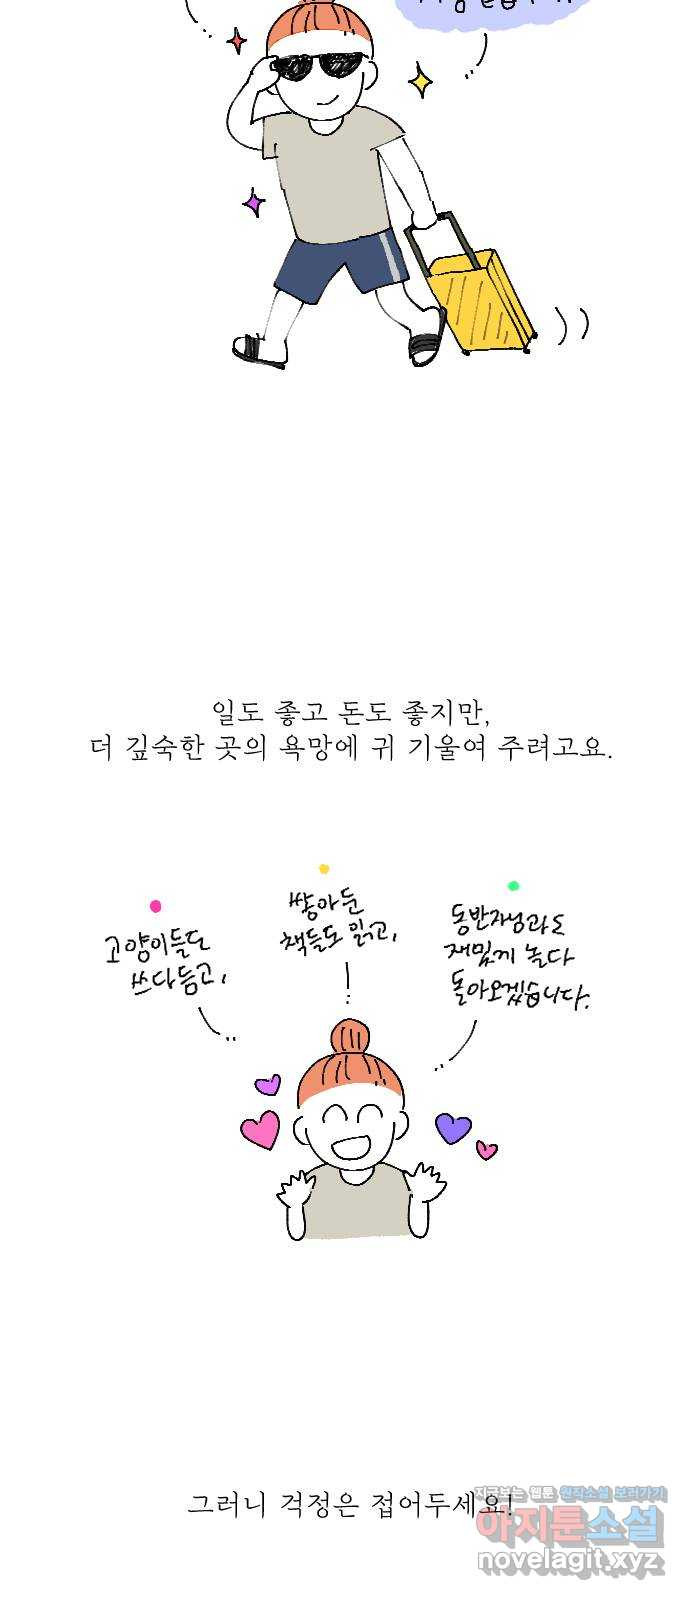 일도 좋고 돈도 좋지만,
더 깊숙한 곳의 욕망에 귀 기울여 주려고요.
쌓아둔
책들도 읽고,
고양이들도
쓰다듬고,
동반자님과도
재밌게 놀다
돌아오겠습니다.
그러니 걱정은 접어두세요!
지금보는 웹툰 원작소설 보러가기
아지툰소설
novelagit.xyz